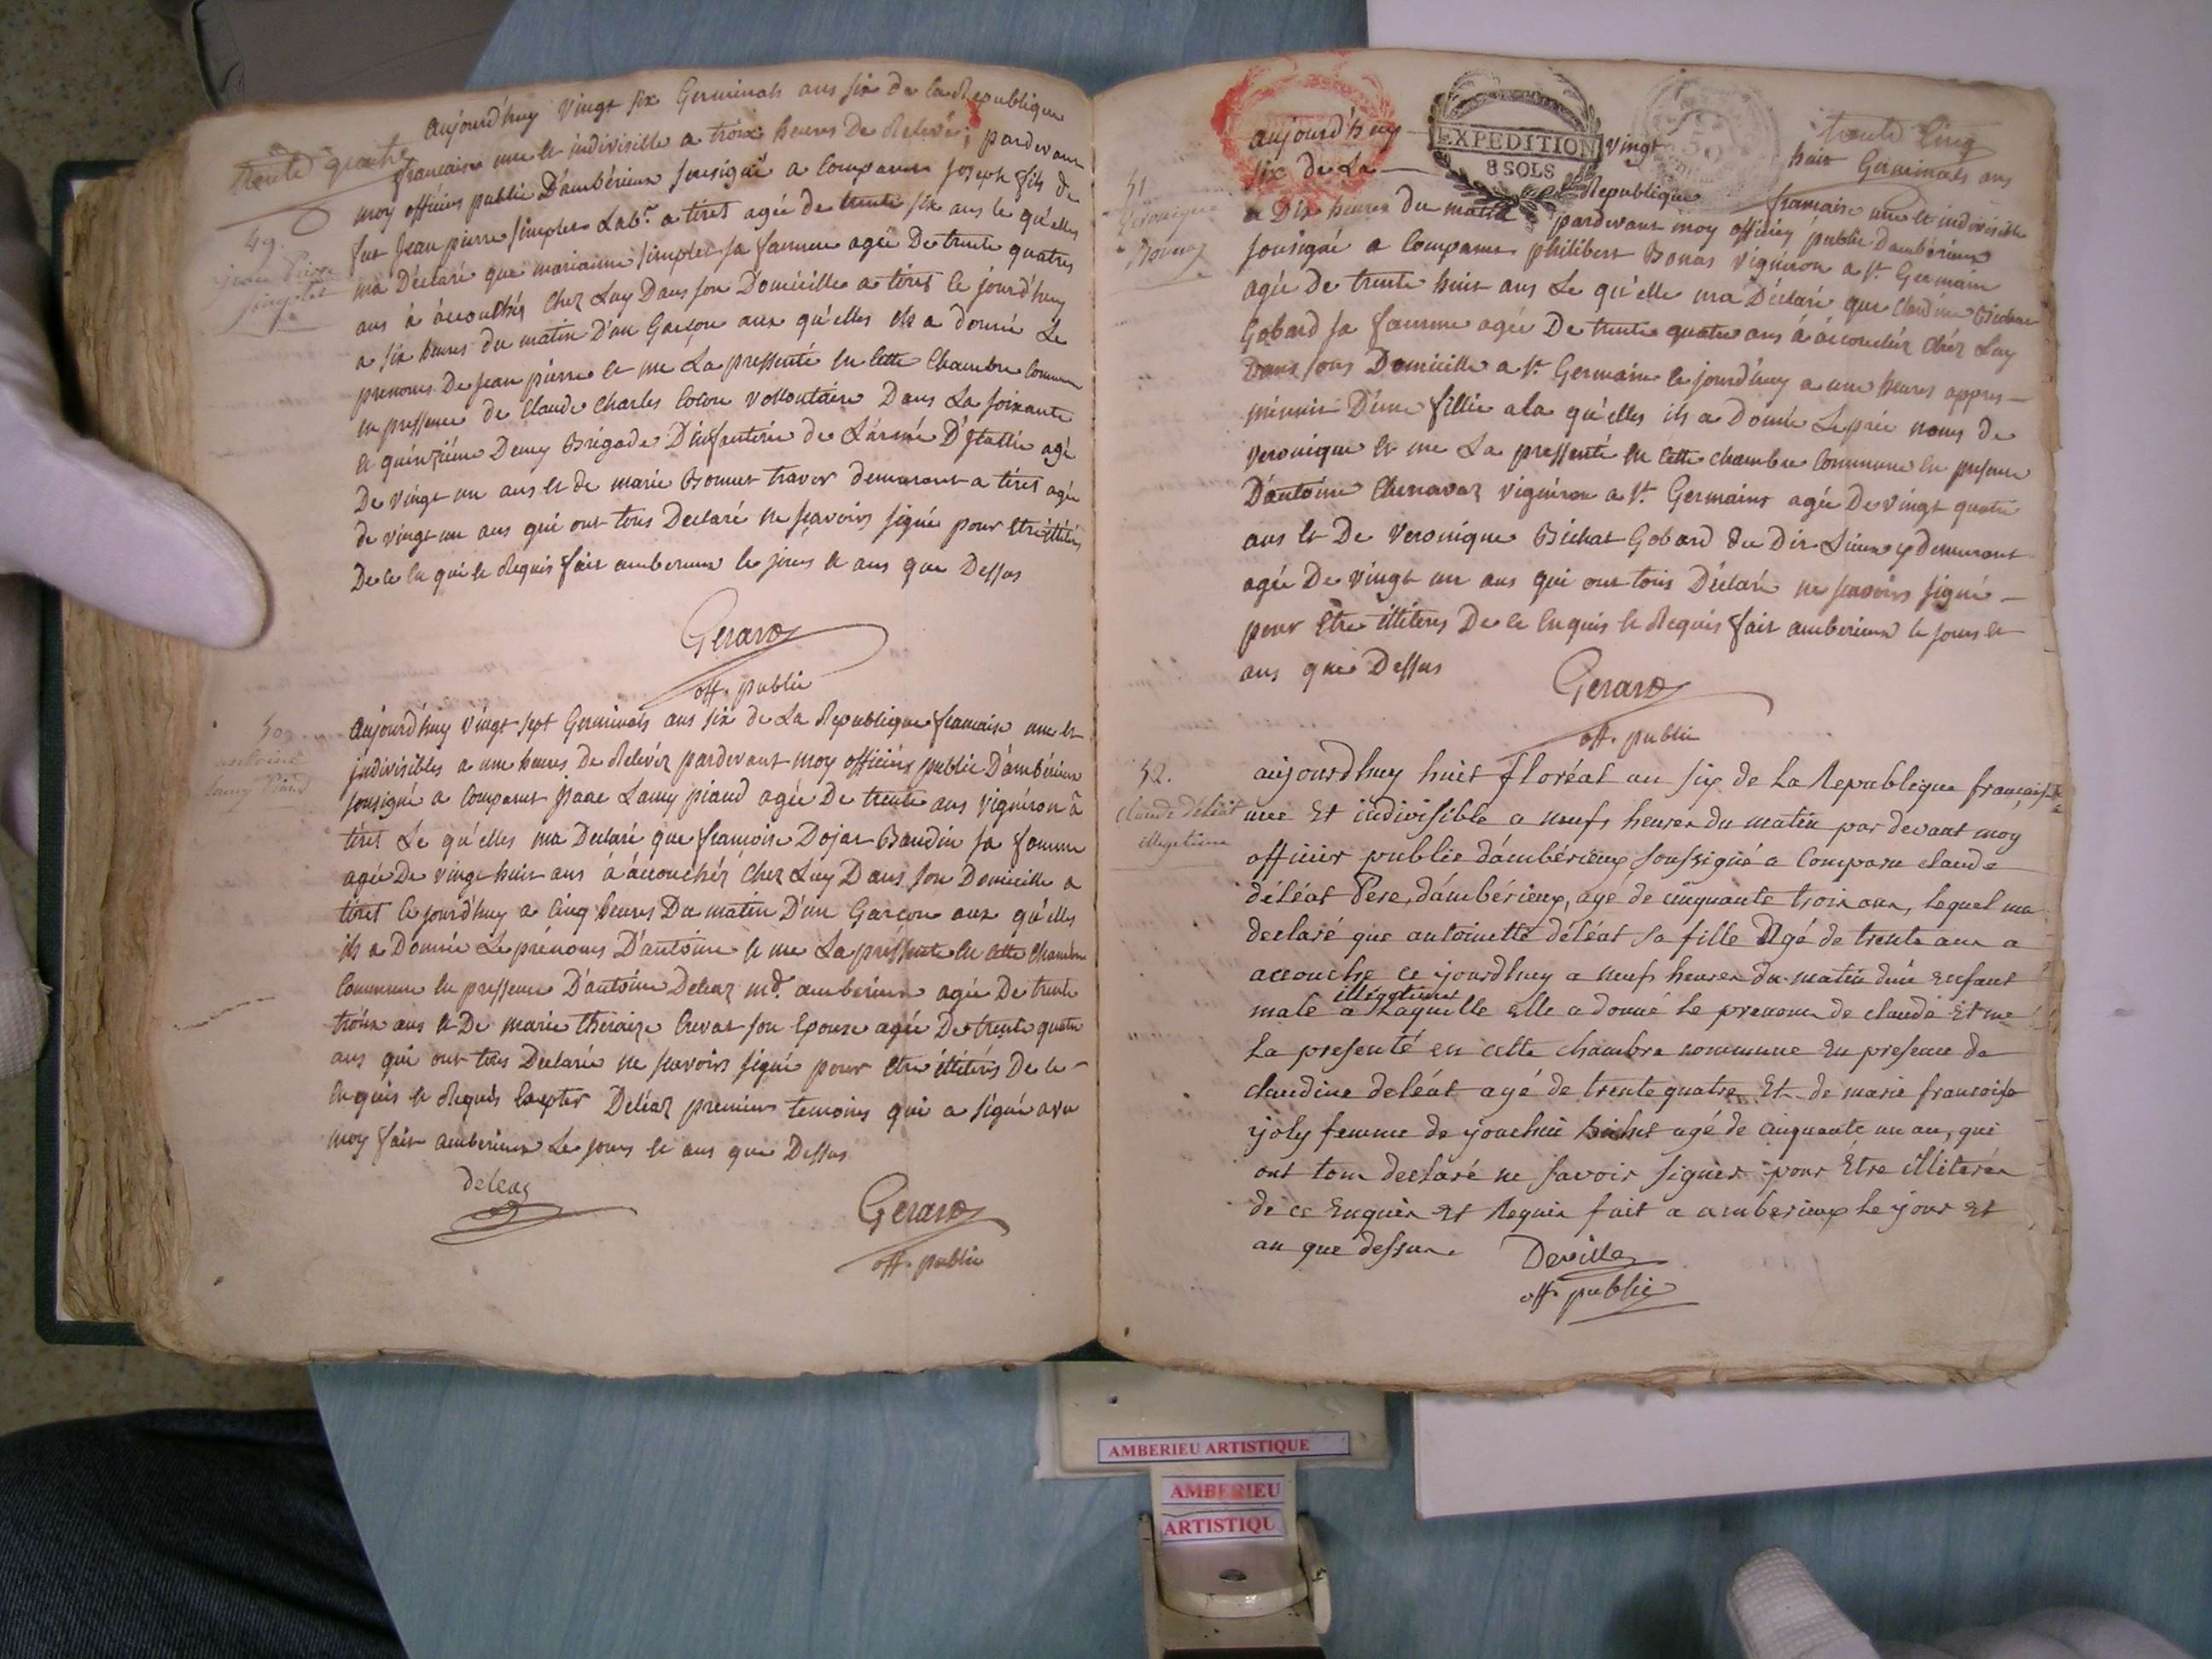 trente quatre
aujourd'huy vingt six Germinals ans six de la Republique
francaise une et indivisible a trois heures De Relevé, pardevant
moy officiers public D'ambérieux sousigné a comparus joseph fils de
fut jean pierre simplet Labr. a tiret agée de trente six ans le qu'elles
ma Déclaré que marianne simplet sa famme agée De trente quatres
ans à accouchés chez Luy Dans son Domicille a tiret le jourd'huy
a six heures du matin D'un Garcon aux qu'elles ils a donné Le
prenoms De jean pierre et me La pressenté en cette Chambre Commune
en pressence de Claude Charles Cocon vollontaire Dans La soixante
et quinzième Demy Brigade D'infanterie de L'armée D'itallie agé
De vingt un ans et de marie Bonnet travor demeurant a tiret agée
de vingt un ans qui ont tous Declaré ne scavoirs signé pour etre illiterés
De ce en qui et Requis fait amberieux le jours et ans que Dessus
Gerard
off. public
49.
jean Pierre
simplet
aujourd'huy vingt sept Germinals ans six de La Republique francaise une et
indivisibles a une heures De Relevéz pardevant moy officiers public D'ambérieux
sousigné a comparus isaac Lamy piaud agée De trente ans vignéron à
tiret Le qu'elles ma Declaré que francoise Dojat Baudin sa famme
agée De vingt huit ans à accouchéz chez Luy Dans son Domicille a
tiret le jourd'huy a cinq heures Du matin D'un Garcon aux qu'elles
ils a Donnée Le prénoms D'antoine et me La pressente en cette chambre
Commune en pressence D'antoine Deleaz md. amberieux agée De trente
trois ans et De marie theraize Crevat son Epouse agée De trente quatre
ans qui ont tous Declaré ne scavoirs signé pour etre illiterés De ce
enquis et Requis Excepter Deléaz premiers temoins qui a signé avec
moy fait amberieux Le jours et ans que Dessus
deleaz
Gerard
off. public
50.
antoine
Lamy Piaud
trente cinq
aujourd'huy vingt huit Germinals ans
six de La Republique francaise une et indivisible
a Dix heures du matin pardevant moy officiers public d'ambérieux
sousigné a Comparus philibert Bonaz vignéron a St. Germain
agée De trente huit ans Le qu'elle ma Déclaré que Claudine Bichat
Gobard sa famme agée De trente quatre ans à accouchéz chéz Luy
Dans sons Domicille a St. Germain le jourd'huy a une heures appres
minuit D'une fillie a la qu'elles ils a Donnée Le pré noms de
veronique et me La pressenté en cette chambre Commune en presence
D'antoine Chenavaz vignéron a St. Germains agée De vingt quatre
ans et De veronique Bichat Gobard du Dit Lieux y demeurant
agée De vingt un ans qui ont tous Déclaré ne scavoirs signé
pour Etre illiterés De ce Enquis et Requis fait amberieux le jours et
ans que Dessus
Gerard
off. public
EXPEDITION
8 SOLS
51.
Veronique
Bonaz
aujourdhuy huit floréal an six de la Republique française
une Et indivisible a neufs heures du matin par devant moy
officier public d'ambérieux soussigné a Comparu claude
déléat Pere, d'ambérieux, age de cinquante trois ans, lequel ma
declaré que antoinette déléat sa fille Agé de trente ans a
accouche ce jourdhuy a neufs heures du matin dun Enfant
male illegitimes a Laquelle elle a donné le prenom de claude Et me
la presenté en cette chambre commune En presence de
claudine deléat agé de trente quatre Et de marie francoise
joly femme de jouchin bichet agé de cinquante un an, qui
ont tous declaré ne savoir signer pour Etre illiterés
de ce Enquis et Requis fait a amberieux le jour Et
an que dessus.
Deville
off. public
52.
claude déléat
illegitime
AMBERIEU ARTISTIQUE
AMBERIEU
ARTISTIQU